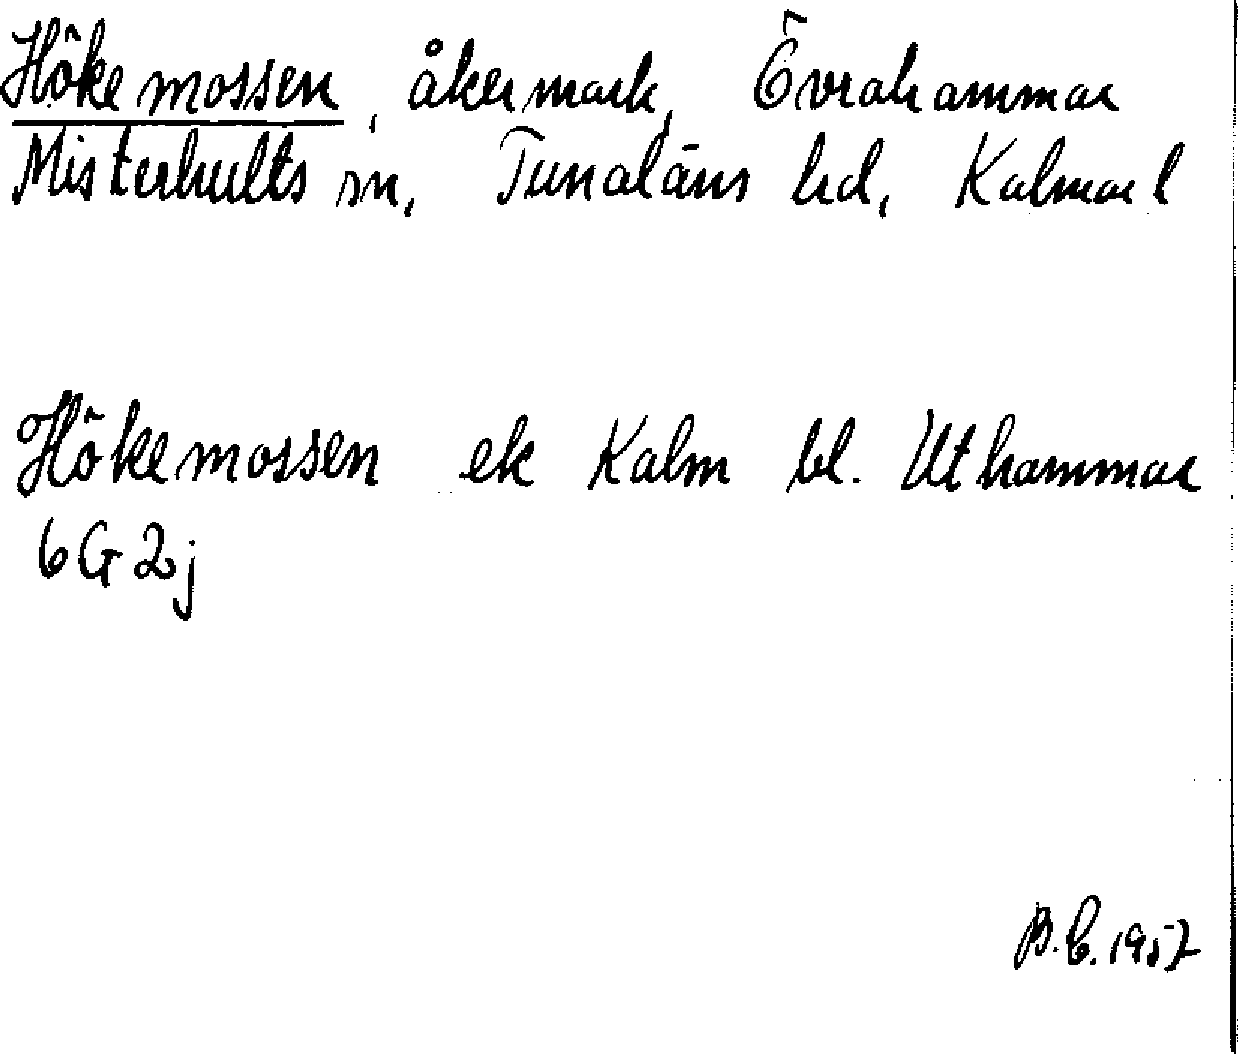 Hökemossen, åkermark, Övrahammar
Misterhults sn, Tunaläns hd, Kalmar l
Hökemossen ek Kalm bl. Uthammar
6G2j
B.C. 1957